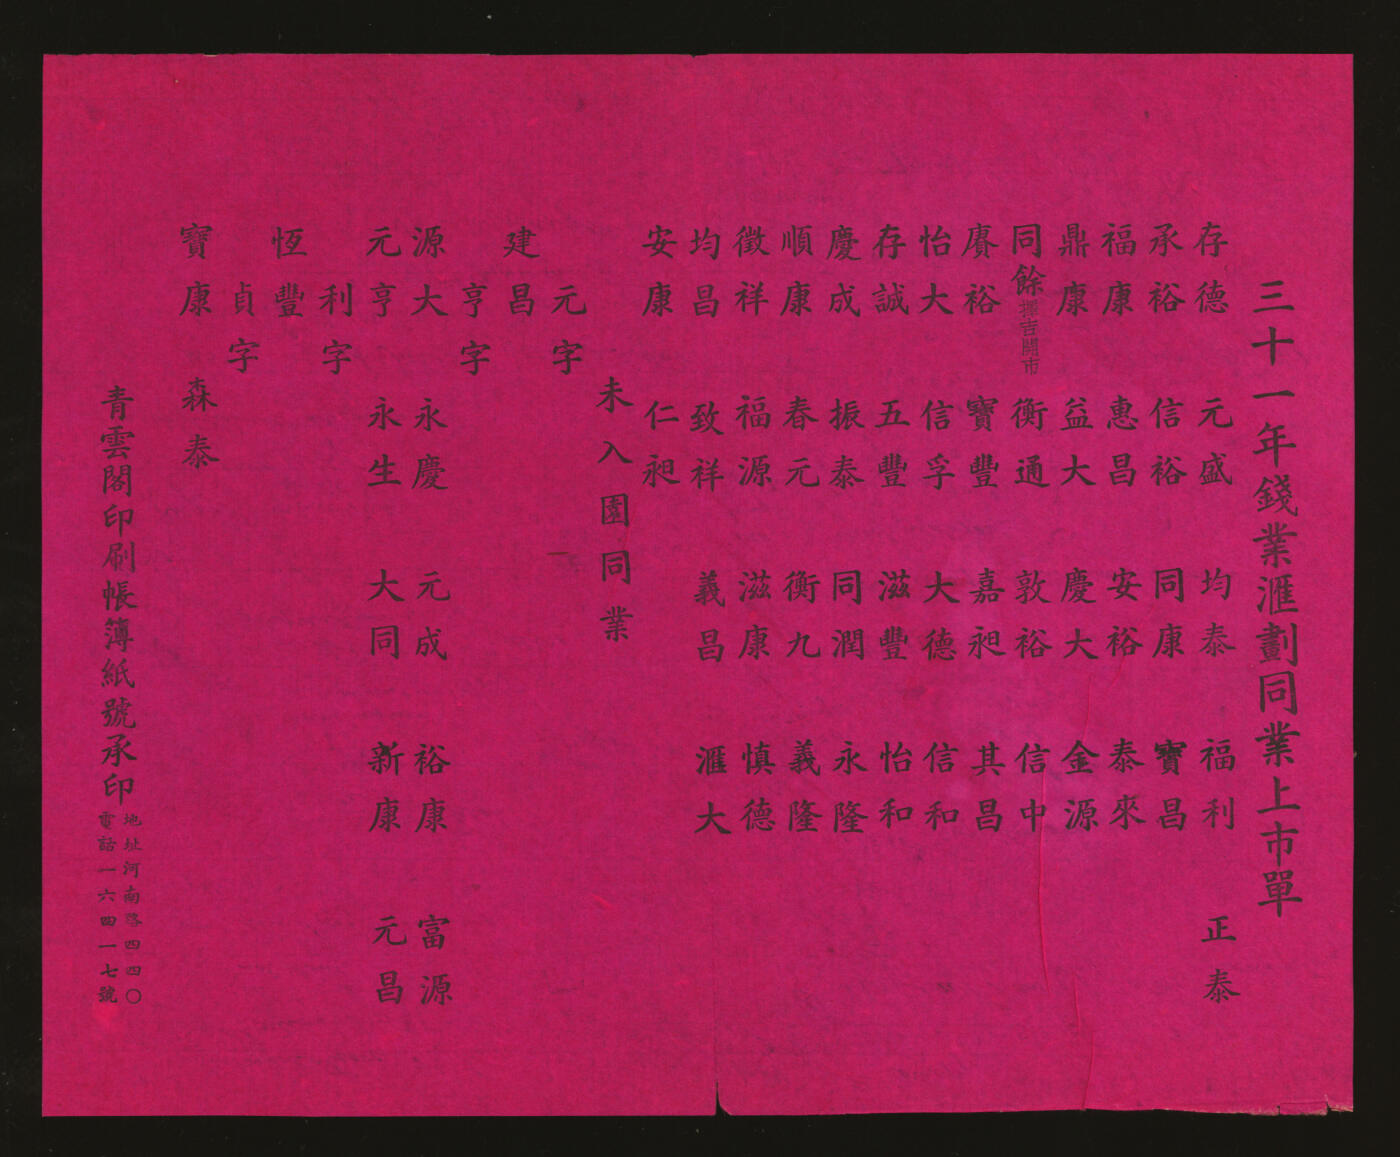 三十一年錢業滙劃同業上市單
存德 元盛 均泰 福利 正泰
承裕 信裕 同康 寶昌
福康 惠昌 安裕 泰來
鼎康 益大 慶大 金源
同餘擇吉開市 衡通 敦裕 信中
賡裕 寶豐 嘉昶 其昌
怡大 信孚 大德 信和
存誠 五豐 滋豐 怡和
慶成 振泰 同潤 永隆
順康 春元 衡九 義隆
徵祥 福源 滋康 慎德
均昌 致祥 義昌 滙大
安康 仁昶
未入園同業
元字
建昌
亨字
源大 永慶 元成 裕康 富源
元亨 永生 大同 新康 元昌
利字
恆豐
貞字
寶康 森泰
青雲閣印刷帳簿紙號承印
地址河南路四四〇
電話一六四一七號